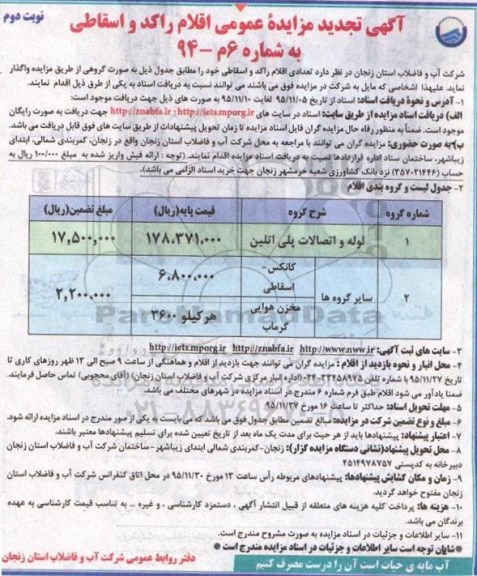 نوبت دوم
آگهی تجدید مزایدهٔ عمومی اقلام راکد و اسقاطی
به شماره ۶م -۹۴
شرکت آب و فاضلاب استان زنجان در نظر دارد تعدادی اقلام راکد و اسقاطی خود را مطابق جدول ذیل به صورت گروهی از طریق مزایده واگذار
نماید. علیهذا اشخاصی که مایل به شرکت در مزایده فوق می باشند می توانند نسبت به دریافت اسناد به یکی از طرق ذیل اقدام نمایند.
۱- آدرس و نحوهٔ دریافت اسناد: اسناد از تاریخ ۹۵/۱۱/۰۵ لغایت ۹۵/۱۱/۱۰ به صورت های ذیل جهت دریافت موجود است:
الف) دریافت اسناد مزایده از طریق سایت: اسناد در سایت های http://iets.mporg.ir و http://znabfa.ir جهت دریافت به صورت رایگان
موجود است. ضمناً به منظور رفاه حال مزایده گران فایل اسناد مزایده تا زمان تحویل پیشنهادات از طریق سایت های فوق قابل دریافت می باشد.
ب) به صورت حضوری: مزایده گران می توانند با مراجعه به محل شرکت آب و فاضلاب استان زنجان واقع در زنجان، کمربندی شمالی، ابتدای
زیباشهر، ساختمان ستاد اداره قراردادها نسبت به دریافت اسناد مزایده اقدام نمایند. (توجه : ارائه فیش واریز شده به مبلغ ۱۰۰/۰۰۰ ریال به
حساب (۳۵۷۰۲۱۴۴۶) نزد بانک کشاورزی شعبه خرمشهر زنجان جهت خرید اسناد الزامی می باشد).
۲- جدول لیست و گروه بندی اقلام
شماره گروه شرح گروه قیمت پایه(ریال) مبلغ تضمین(ریال)
۱ لوله و اتصالات پلی اتلین ۱۷۸.۳۷۱.۰۰۰ ۱۷,۵۰۰,۰۰۰
۲ سایر گروه ها کانکس- اسقاطی ۶.۸۰۰.۰۰۰ ۲,۲۰۰.۰۰۰
مخزن هوایی گرماب هرکیلو ۳۶۰۰
ParsNamadData
۳- سایت های ثبت آگهی: http://www.nww.ir http://znabfa.ir http://iets.mporg.ir
۴- محل انبار و نحوه بازدید از اقلام : مزایده گران می توانند جهت بازدید از اقلام و هماهنگی از ساعت ۹ صبح الی ۱۳ ظهر روزهای کاری تا
تاریخ ۹۵/۱۱/۲۷ با شماره تلفن ۳۳۴۵۸۹۷۵-۰۲۴ (اداره انبار مرکزی شرکت آب و فاضلاب استان زنجان) (آقای محجوبی) تماس حاصل فرمایند.
ضمناً یادآور می شود اقلام طبق فرم شماره ۶ مندرج در اسناد مزایده در شهرهای مختلف می باشد.
۵- مهلت تحویل اسناد: حداکثر تا ساعت ۱۴ مورخ ۹۵/۱۱/۲۷
۶- مبلغ و نوع تضمین شرکت در مزایده: مبالغ تضمین مطابق جدول فوق می باشد که می بایست به یکی از صور مندرج در اسناد مزایده ارائه شود.
۷- اعتبار پیشنهاد: پیشنهادها باید از هر حیث برای مدت یک ماه بعد از تاریخ تعیین شده برای تسلیم پیشنهادها معتبر باشند.
۸- محل تحویل پیشنهاد(نشانی دستگاه مزایده گزار): زنجان-کمربندی شمالی ابتدای زیباشهر-ساختمان شرکت آب و فاضلاب استان زنجان
دبیرخانه به کدپستی ۴۵۱۴۹۷۸۷۵۷
۹- زمان و مکان گشایش پیشنهادها: پیشنهادهای مربوطه رأس ساعت ۱۳ مورخ ۹۵/۱۱/۳۰ در محل اتاق کنفرانس شرکت آب و فاضلاب استان
زنجان مفتوح خواهد گردید.
۱۰- هزینه ها: پرداخت کلیه هزینه های متعلقه از قبیل انتشار آگهی ، دستمزد کارشناسی ، و غیره _ به تناسب قیمت کارشناسی به عهده
برندگان می باشد.
۱۱- سایر اطلاعات و جزئیات در اسناد مزایده به صورت مشروح مندرج است.
● شایان توجه است سایر اطلاعات و جزئیات در اسناد مزایده مندرج است ●
آب مایه ی حیات است آن را درست مصرف کنیم
دفتر روابط عمومی شرکت آب و فاضلاب استان زنجان